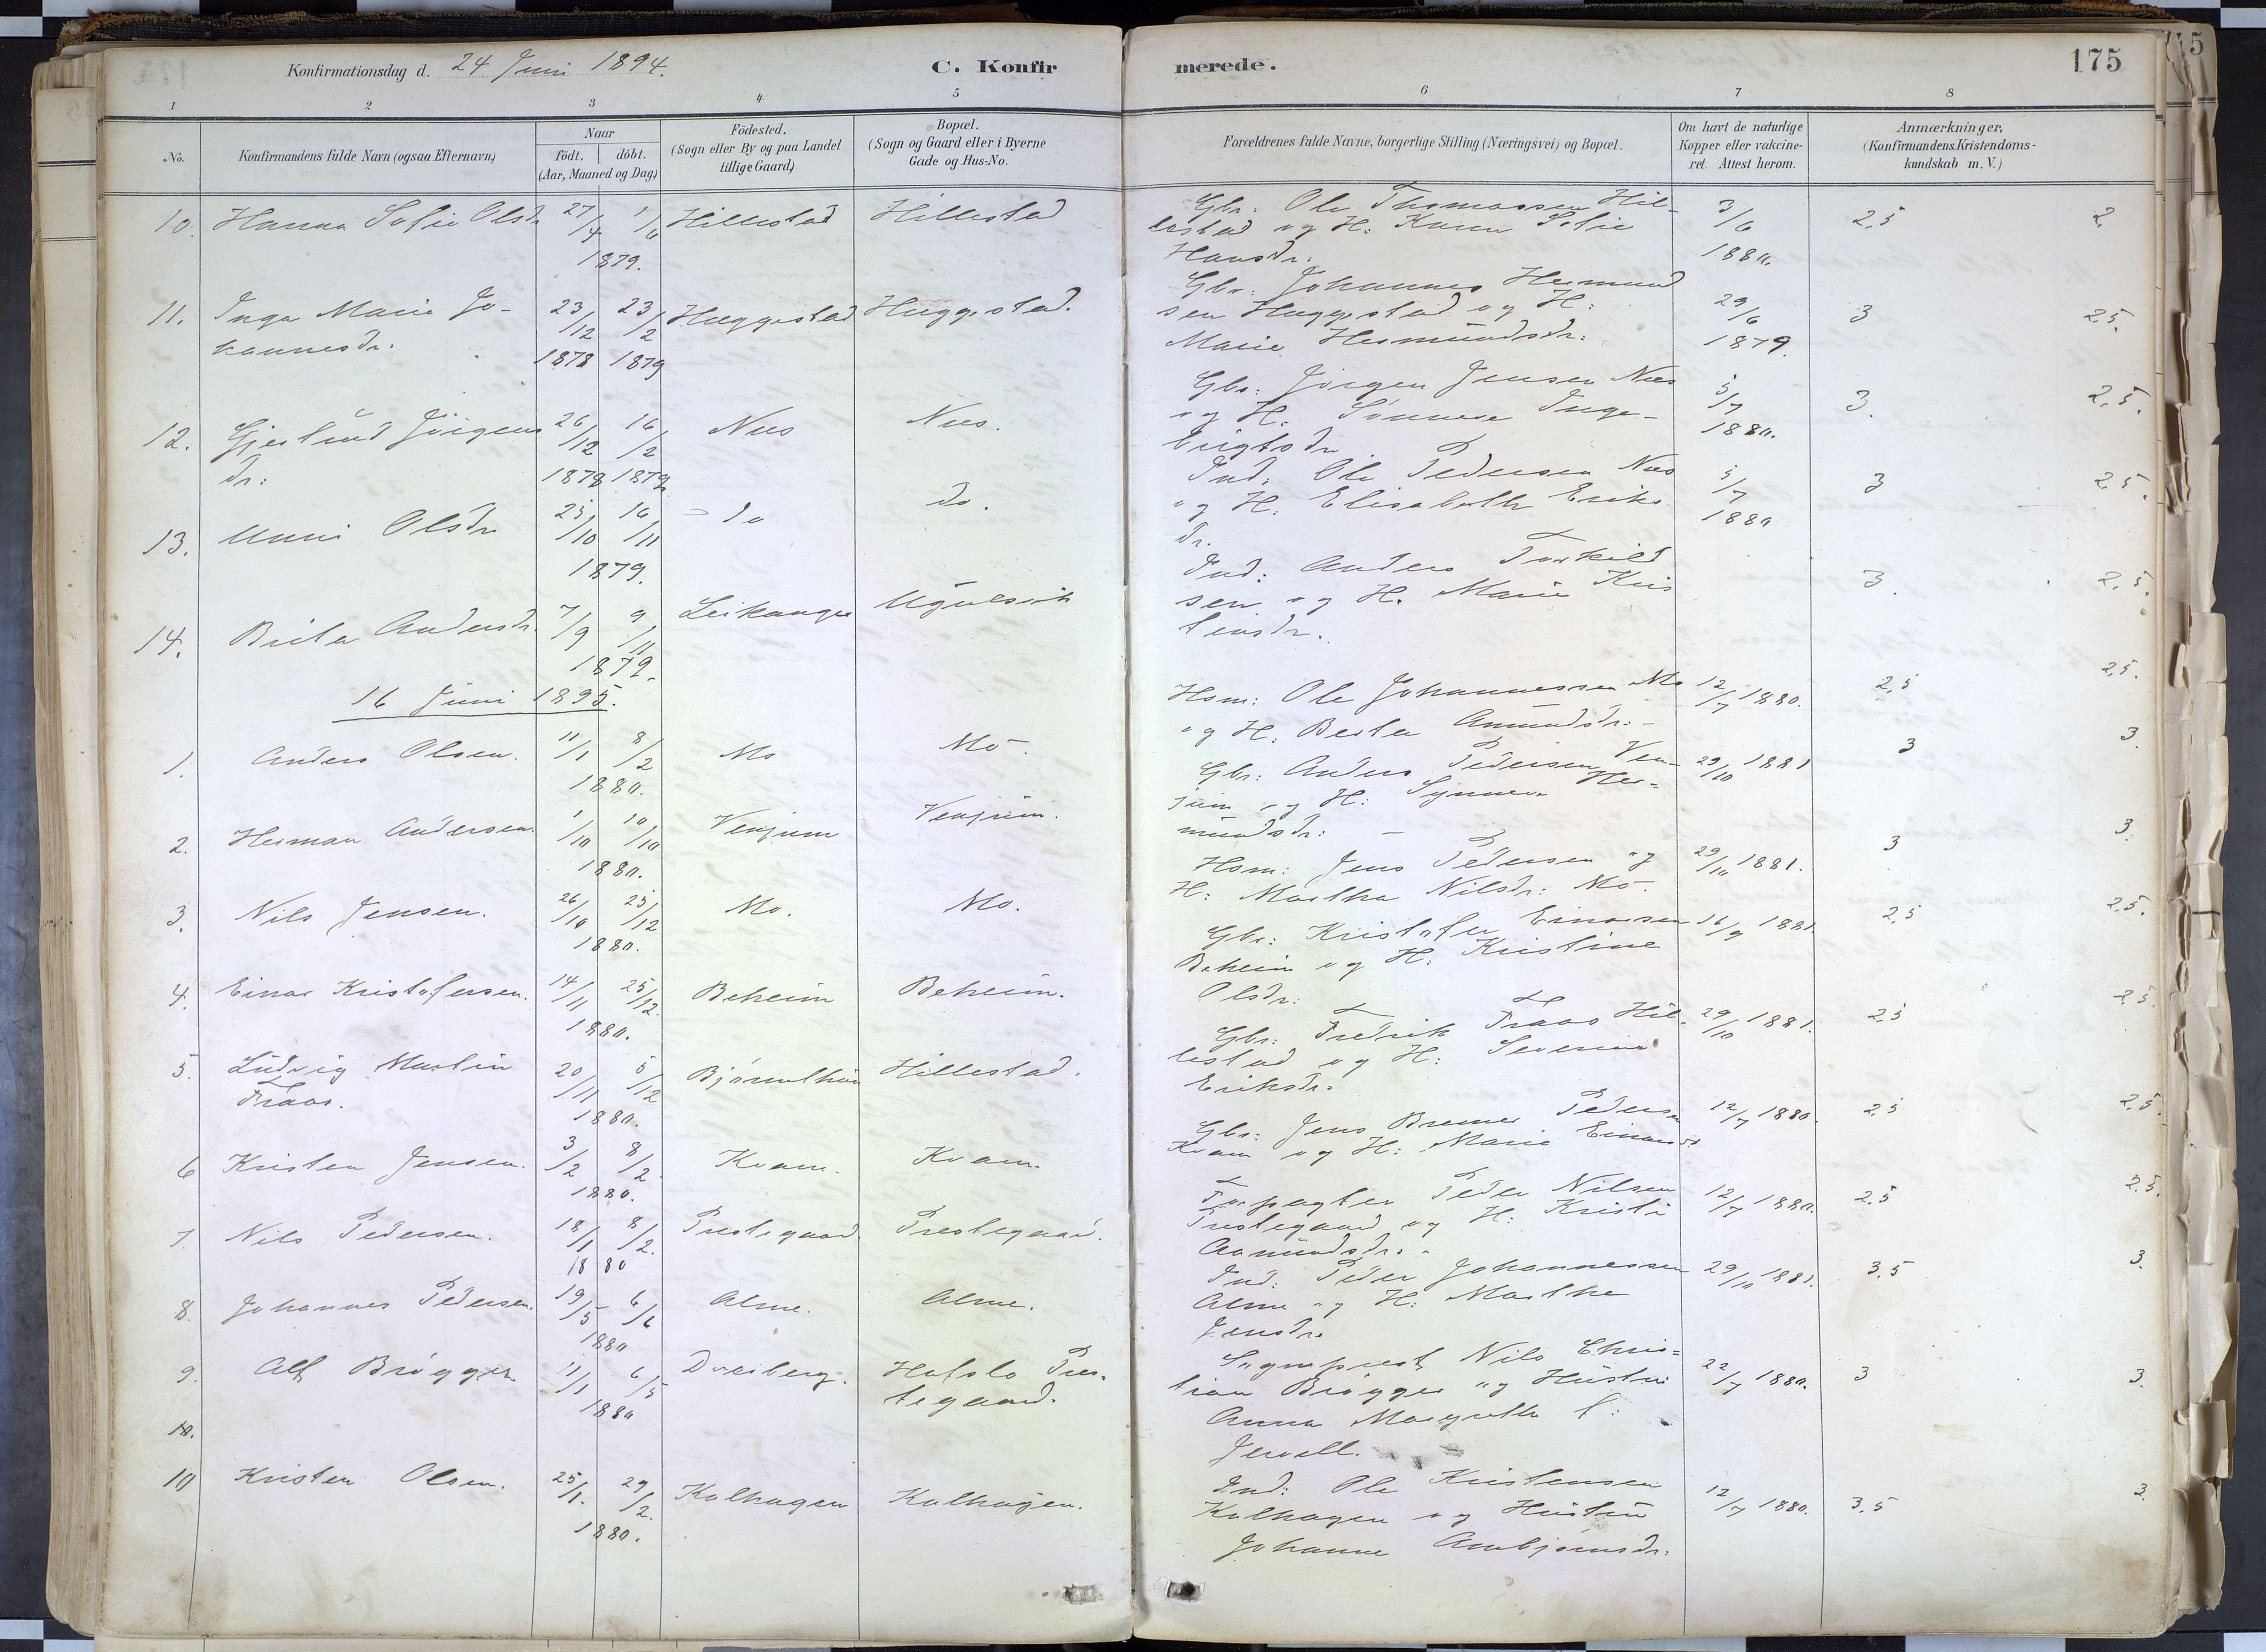 Konfirmationsdag d. 24 Juni 1894.
C. Konfirmerede.
175
1 2 3 4 5 6 7 8
No.
Konfirmandens fulde Navn (ogsaa Efternavn)
Naar
födt. döbt.
(Aar, Maaned og Dag)
Födested.
(Sogn eller By og paa Landet
tillige Gaard)
Bopæl.
(Sogn og Gaard eller i Byerne
Gade og Hus-No.
Forældrenes fulde Navne, borgerlige Stilling (Næringsvei) og Bopæl.
Om havt de naturlige
Kopper eller vakcine-
ret. Attest herom.
Anmærkninger.
(Konfirmandens Kristendoms-
kundskab m. V.)
10. Hanna Sofie Olsdr 27/4 1/6 1879. Hillestad Hillestad
Gbr. Ole Thomassen Hil-
lestad og H: Karen Sofie
Hansdr. 3/6 1880. 2,5 2.
11. Inga Marie Jo-
hannesdr. 23/12 1878 23/2 1879 Huggestad Huggestad.
Gbr. Johannes Hermund
sen Huggestad og H:
Marie Hermundsdr. 29/6 1879. 3 2,5.
12. Gjertrud Jörgens
dr: 26/12 1878 16/2 1879 Nes Nes.
Gbr. Jörgen Jensen Nes
og H. Sönneva Inge-
brigtsdr 5/7 1880. 3. 2,5.
13. Unni Olsdr 25/10 16/11 1879. do do.
Ind. Ole Pedersen Nes
og H. Elisabeth Eriks
dr. 5/7 1880 3 2,5.
14. Brita Andersdr. 7/9 9/11 1879. Leikanger
Ind: Anders Torkild
sen og H. Marie Kris
tensdr. 3. 2,5.
16 Juni 1895.
1. Anders Olsen. 11/1 8/2 1880. Mo Mo.
Hsm: Ole Johannessen Mo
og H: Amundsdr. 12/7 1880. 2,5 2,5.
2. Herman Andersen. 1/10 10/10 1880. Venjum Venjum.
Gbr: Anders Pedersen Ven-
jum og H: Synneva Her-
mundsdr: 29/10 1881 3 3.
3. Nils Jensen. 26/10 25/12 1880. Mo. Mo.
Hsm: Jens Pedersen og
H: Martha Nilsdr: Mo. 29/10 1881. 3 3.
4. Einar Kristofersen. 14/11 25/12. 1880. Beheim Beheim.
Gbr: Kristofer Einarsen
Beheim og H: Kristine
Olsdr: 16/9 1881. 2,5 2,5.
5. Ludvig Martin
Fraas. 20/11 5/12 1880. Hillestad.
Gbr: Fredrik Fraas Hil-
lestad og H: Severine
Eriksdr. 29/10 1881. 2,5 2,5.
6 Kristen Jensen. 3/2 8/2. 1880. Kvam. Kvam.
Gbr: Jens Bremer Pedersen
Kvam og H: Marie Einarsdr 12/7 1880. 2,5 2,5.
7. Nils Pedersen. 18/1 8/2. 1880 Prestegaard Prestegaard.
Forpagter Peder Nilsen
Prestegaard og H: Kristi
Aamundsdr. 12/7 1880. 2,5 2,5.
8. Johannes Pedersen. 19/5 6/6 1880 Alme. Alme.
Ind: Peder Johannessen
Alme og H: Marthe
Jensdr. 29/10 1881. 3,5 3.
9. Alf Brögger. 11/1 6/5 1880 Hafslo Pres-
tegaard.
Sogneprest Nils Chris-
tian Brögger og Hustru
Anna Margrethe f:
Jervell. 22/7 1880. 3 3.
10.
10 Kristen Olsen. 25/1. 29/2. 1880. Kalhagen Kalhagen.
Ind: Ole Kristensen
Kalhagen og Hustru
Johanne Arnbjörnsdr. 12/7 1880. 3,5 3.